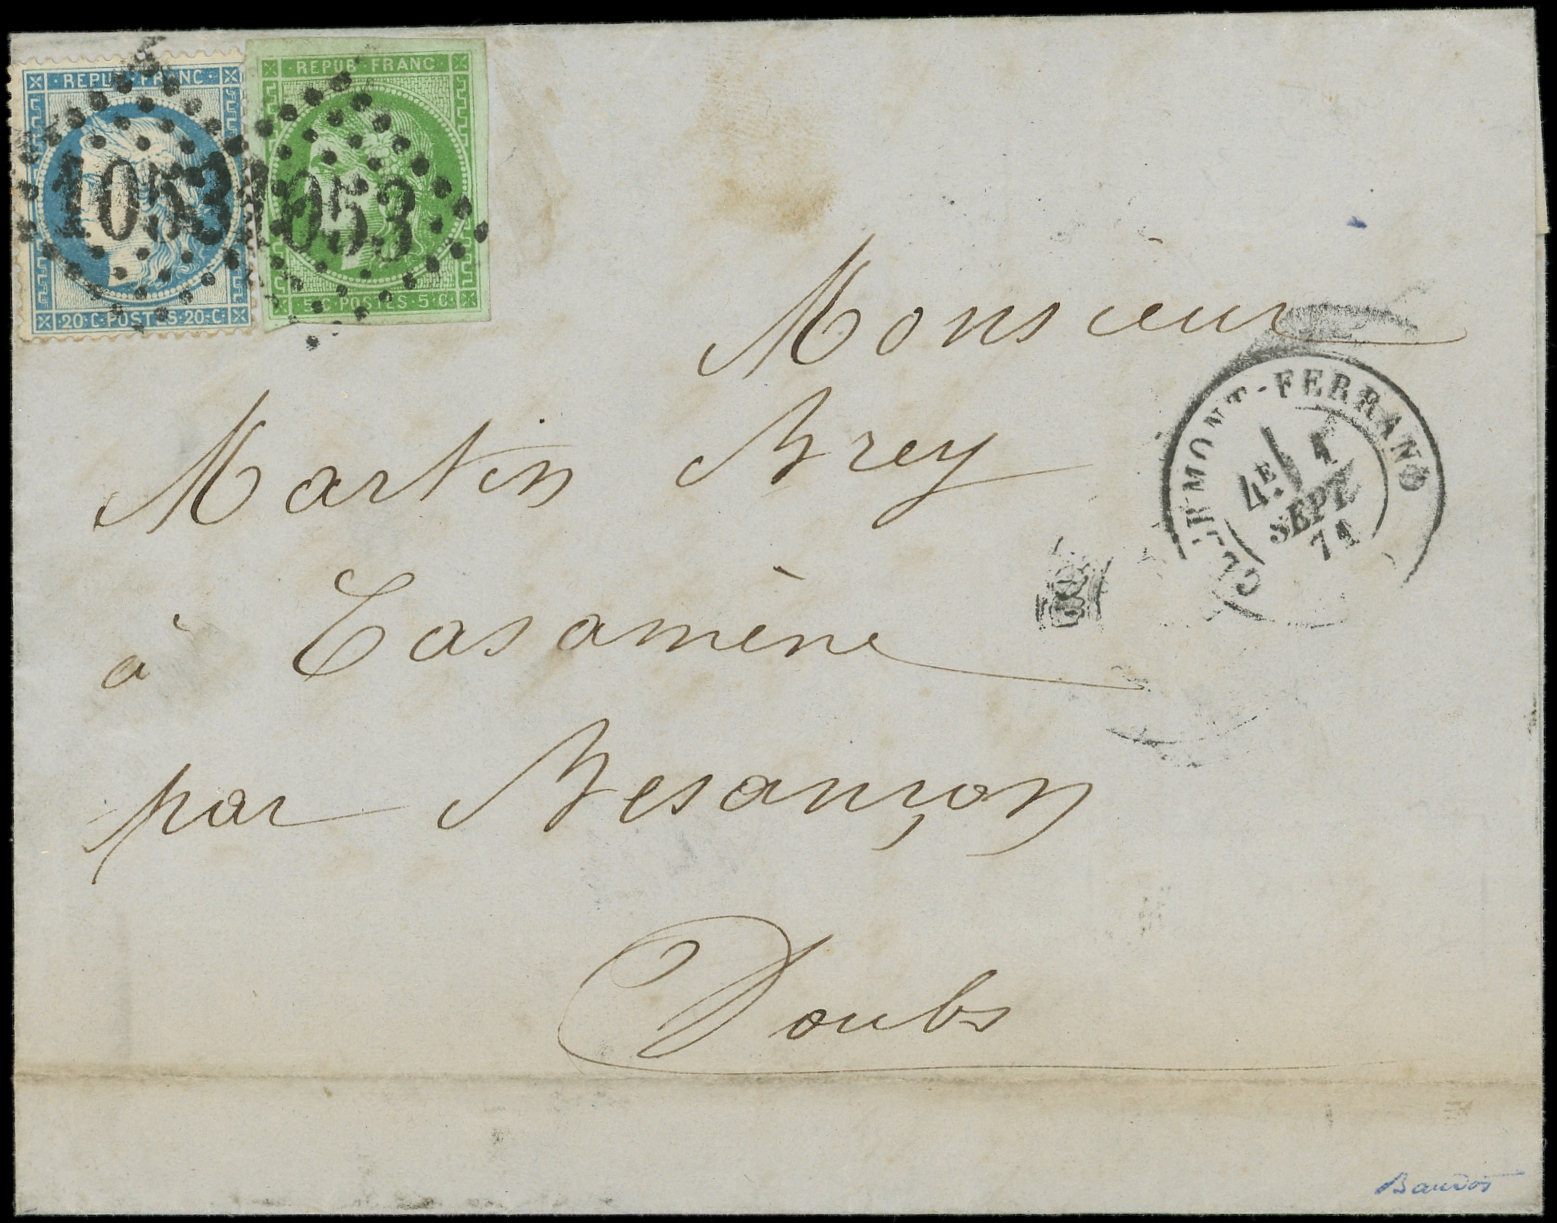 REPUB·FRANC
REPUB·FRANC
1053
1053
20·C·POSTES·20·C·
5·C·POSTES·5·C·
Monsieur
CL-RMONT-FERRAND
4E 1
SEPT
71
Martin Brey
à Casamène
par Besançon
Doubs
Baudot